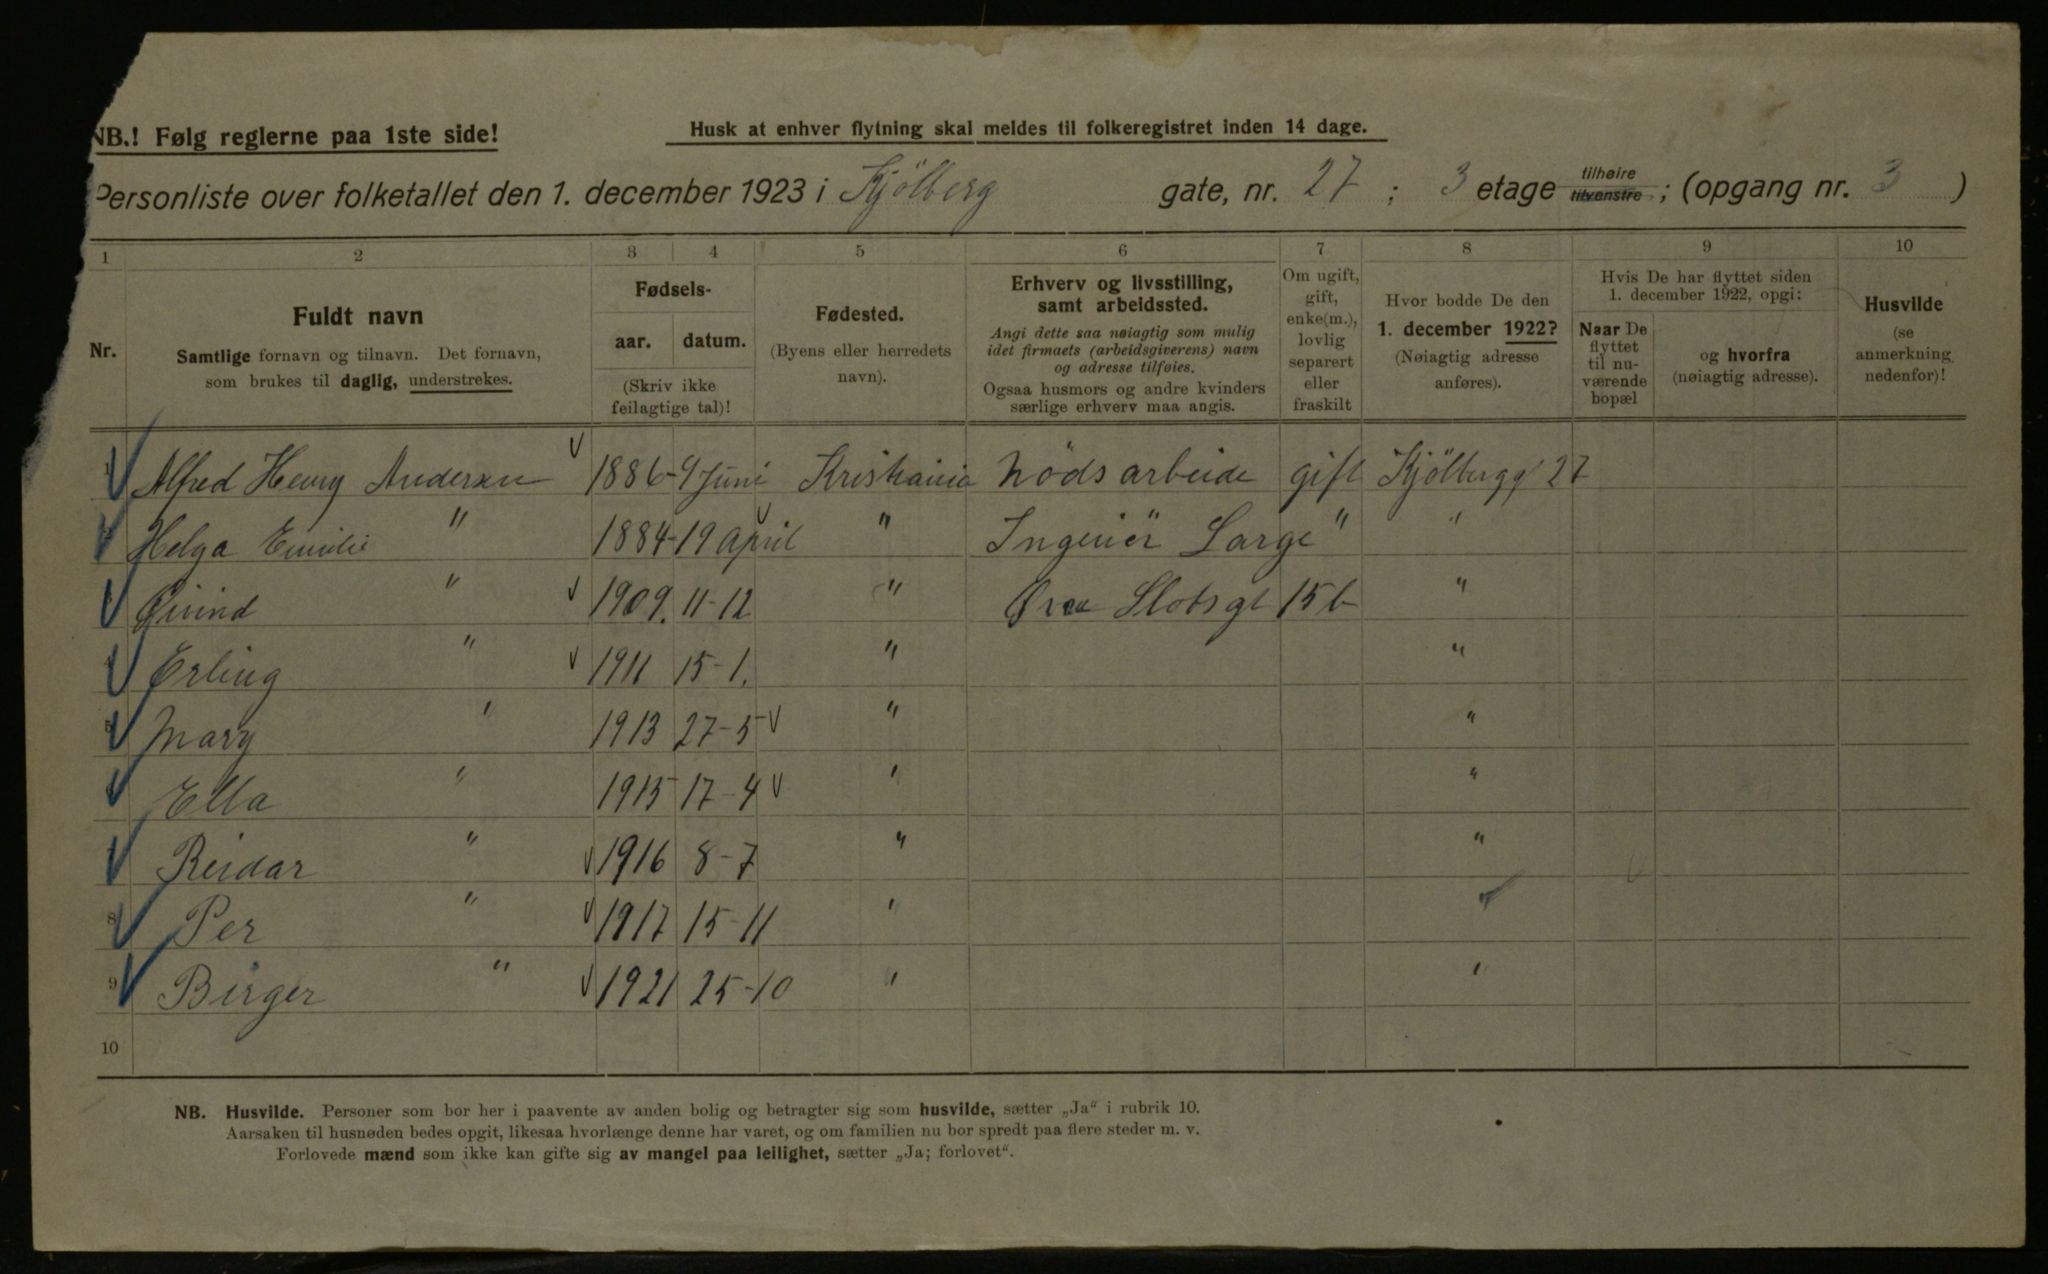 NB.! Følg reglerne paa 1ste side!
Husk at enhver flytning skal meldes til folkeregistret inden 14 dage.
Personliste over folketallet den 1. december 1923 i Kjölberg gate, nr. 27 ; 3 etage tilhøire tilvenstre ; (opgang nr. 3 )
1 2 3 4 5 6 7 8 9 10
Nr.
Fuldt navn
Samtlige fornavn og tilnavn. Det fornavn,
som brukes til daglig, understrekes.
Fødsels-
aar. datum.
(Skriv ikke
feilagtige tal)!
Fødested.
(Byens eller herredets
navn).
Erhverv og livsstilling,
samt arbeidssted.
Angi dette saa nøiagtig som mulig
idet firmaets (arbeidsgiverens) navn
og adresse tilføies.
Ogsaa husmors og andre kvinders
særlige erhverv maa angis.
Om ugift,
gift,
enke(m.),
lovlig
separert
eller
fraskilt
Hvor bodde De den
1. december 1922?
(Nøiagtig adresse
anføres).
Hvis De har flyttet siden
1. december 1922, opgi:
Naar De
flyttet
til nu-
værende
bopæl
og hvorfra
(nøiagtig adresse).
Husvilde
(se
anmerkning
nedenfor)!
1 Alfred Henry Andersen 1886 - 4 Juni Kristiania Nöds arbeide gift Kjölbergg 27
2 Helga Emilie " 1884 - 19 April " Ingeniör Lange " "
3 Øivind " 1909. 11-12 " Øvre Slotsgt 15 b "
4 Erling " 1911 15-1. " "
5 Mary " 1913 27-5 " "
6 Ella " 1915 17-4 " "
7 Reidar " 1916 8-7 " "
8 Per " 1917 15-11 " "
9 Birger " 1921 25-10 " "
10
NB. Husvilde. Personer som bor her i paavente av anden bolig og betragter sig som husvilde, sætter „Ja“ i rubrik 10.
Aarsaken til husnøden bedes opgit, likesaa hvorlænge denne har varet, og om familien nu bor spredt paa flere steder m. v.
Forlovede mænd som ikke kan gifte sig av mangel paa leilighet, sætter „Ja; forlovet“.